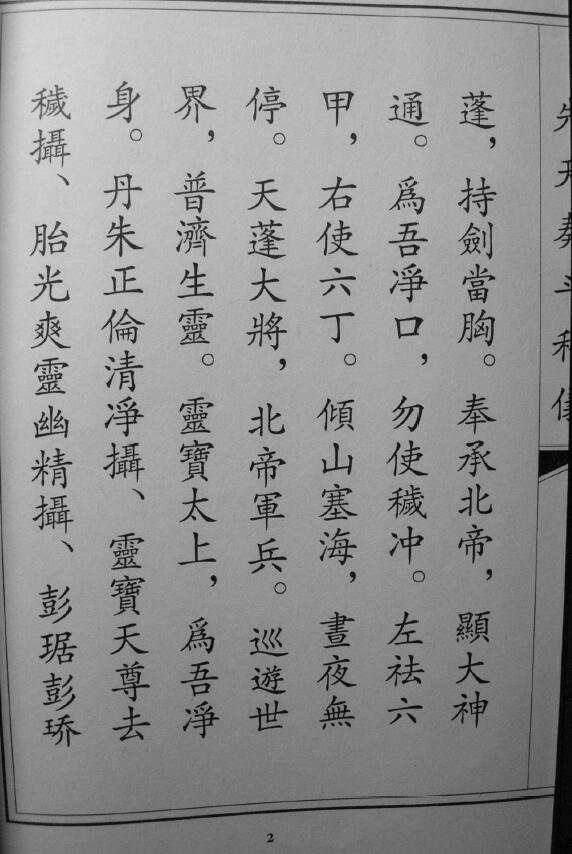 先天奏斗科儀
蓬，持劍當胸。奉承北帝，顯大神
通。爲吾凈口，勿使穢冲。左祛六
甲，右使六丁。傾山塞海，晝夜無
停。天蓬大將，北帝軍兵。巡遊世
界，普濟生靈。靈寶太上，爲吾凈
身。丹朱正倫清凈攝、靈寶天尊去
穢攝、胎光爽靈幽精攝、彭琚彭琦
2